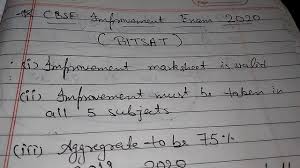 * CBSE Improvement Exam 2020
(BITSAT)
(i) Improvement marksheet is valid
(ii) Improvement must be taken in
all 5 subjects
(iii) Aggregrate to be 75%
2020